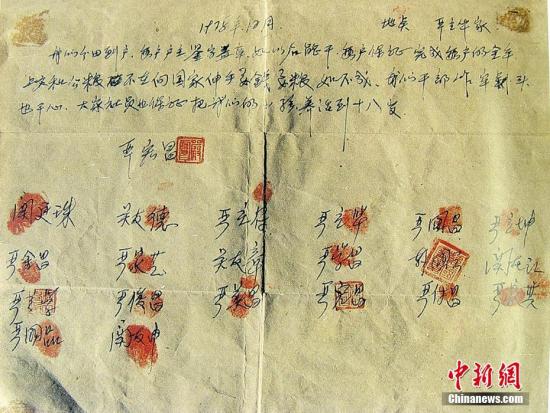 1978年12月. 地点 严立华家
我们分田到户,每户户主签字盖章,如以后能干,每户保证完成每户的全年
上交和公粮 不在向国家伸手要钱要粮,如不成,我们干部作牢刹头
也干心,大家社员也保证把我们的小孩养活到十八岁
严宏昌
关廷珠 关友德 严立符 严立华 严国昌 严立坤
严金昌 严家芝 关友章 严学昌 韩国云 关友江
严立学 严俊昌 严美昌 严宏昌 严付昌 严家其
严国品 关友申
中新网
Chinanews.com